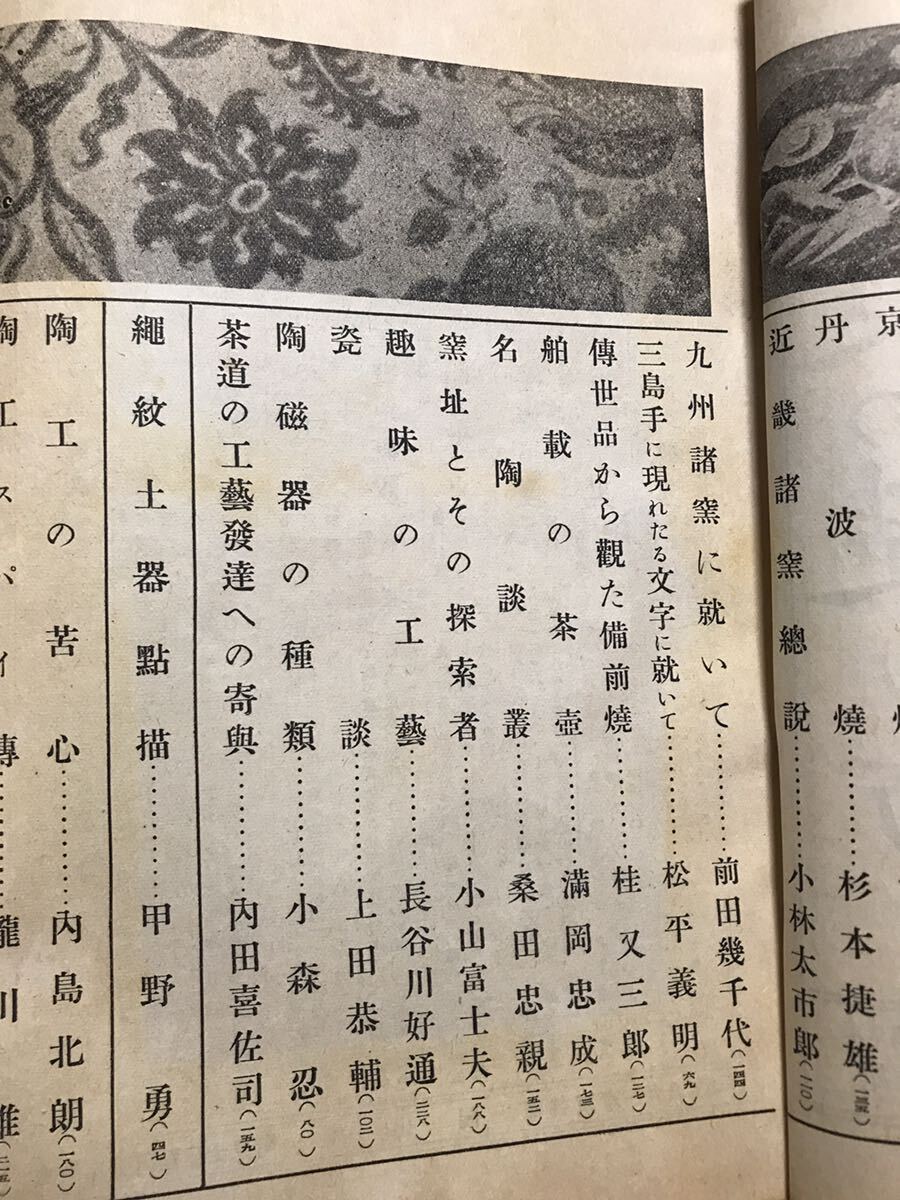 京
丹波燒…………杉本捷雄(一三五)
近畿諸窯總說…………小林太市郎(一二〇)
九州諸窯に就いて…………前田幾千代(一四四)
三島手に現れたる文字に就いて…………松平義明(六九)
傳世品から觀た備前燒…………桂又三郎(一二七)
舶載の茶壺…………滿岡忠成(一七三)
名陶談叢…………桑田忠親(一五二)
窯址とその探索者…………小山富士夫(一八八)
趣味の工藝…………長谷川好通(二二八)
瓷談…………上田恭輔(一〇二)
陶磁器の種類…………小森忍(八〇)
茶道の工藝發達への寄與…………內田喜佐司(一五九)
繩紋土器點描…………甲野勇(四七)
陶工の苦心…………內島北朗(一八〇)
陶工スパイ傳…………瀧川